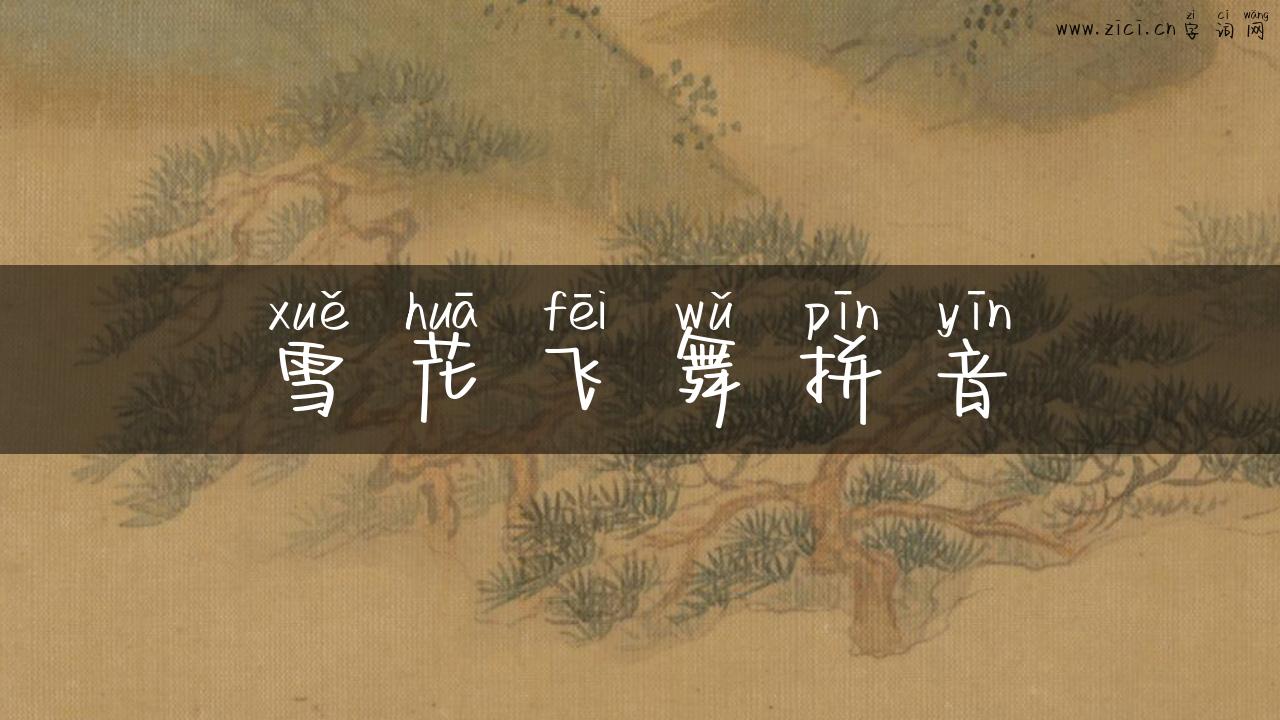 zì cí wǎng
www.zici.cn 字 词 网
xuě huā fēi wǔ pīn yīn
雪 花 飞 舞 拼 音